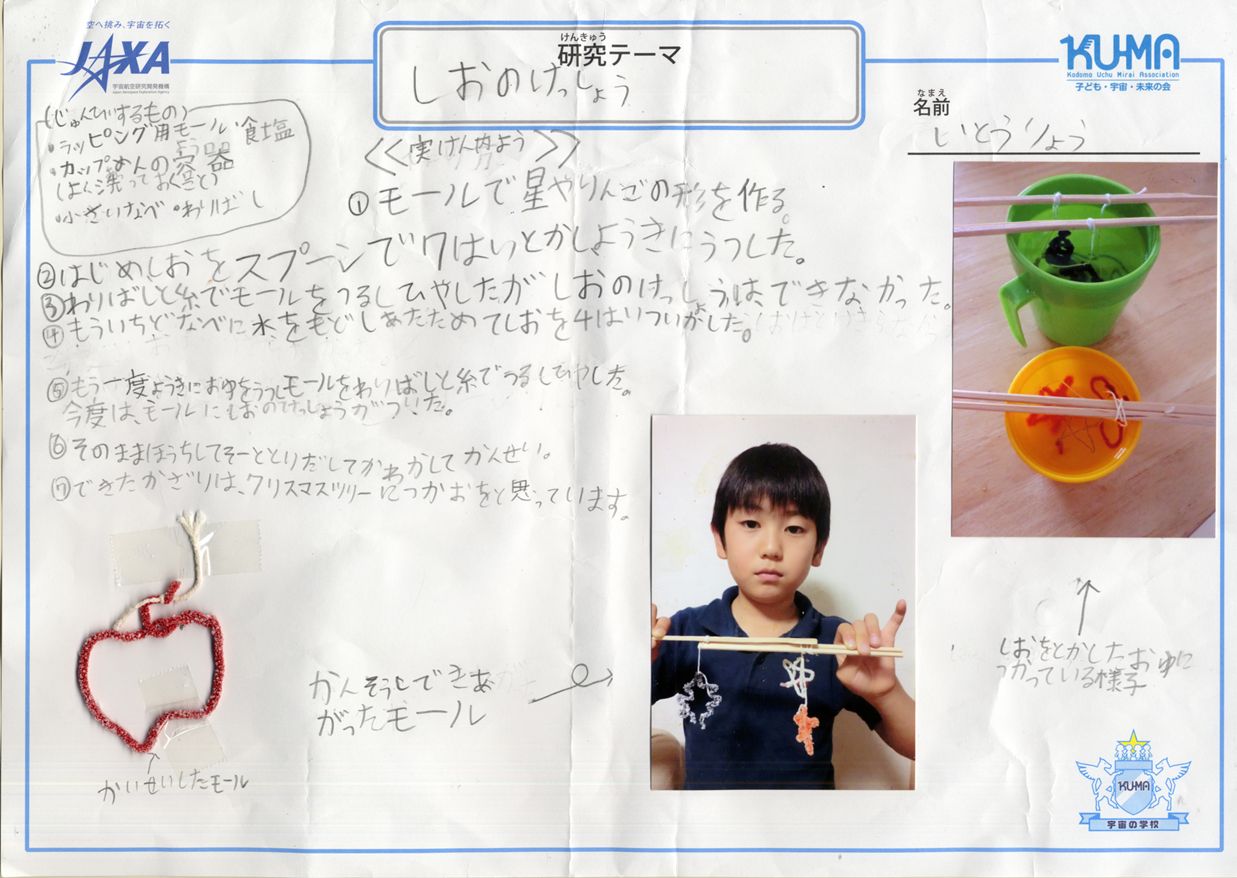 空へ挑み、宇宙を拓く
JAXA
宇宙航空研究開発機構
Japan Aerospace Exploration Agency
けんきゅう
研究テーマ
しおのけっしょう
KU-MA
Kodomo Uchu Mirai Association
子ども・宇宙・未来の会
なまえ
名前
いとうりょう
(じゅんびするもの)
・ラッピング用モール・食塩
・カップめんの容器
(よく洗っておくこと)
・小さいなべ・わりばし
≪実けん内よう≫
①モールで星やりんごの形を作る。
②はじめしおをスプーンで7はいとかしようきにうつした。
③わりばしと糸でモールをつるしひやしたがしおのけっしょうは、できなかった。
④もういちどなべに水をもどしあたためてしおを4はいついかした。
⑤もう一度ようきにおゆをうつしモールをわりばしと糸でつるしひやした。
今度は、モールにしおのけっしょうがついた。
⑥そのままほうちしてそーととりだしてかわかしてかんせい。
⑦できたかざりは、クリスマスツリーにつかおをと思っています。
かんそうしできあ
がったモール
かいせいしたモール
しおをとかしたおゆに
つかっている様子
KU-MA
宇宙の学校